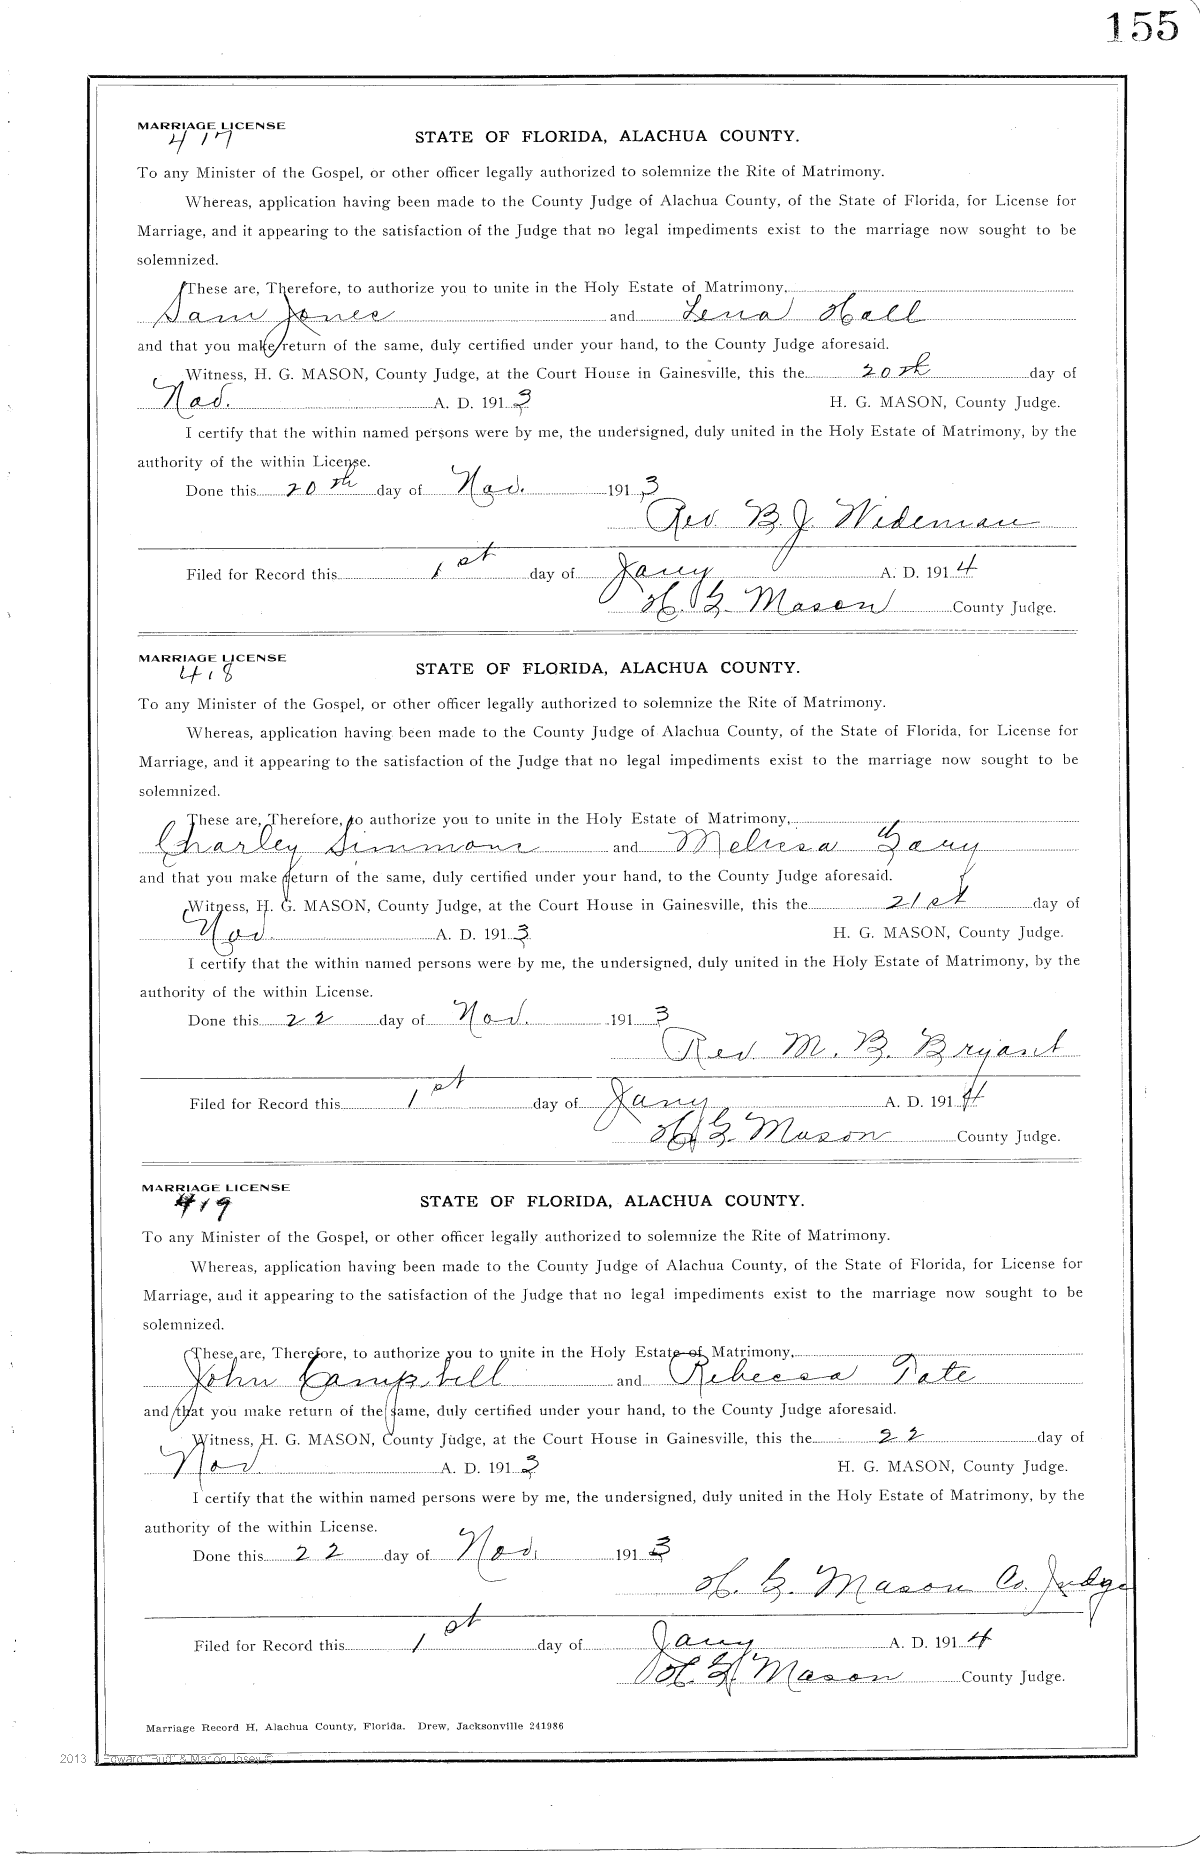 155
MARRIAGE LICENSE
417
STATE OF FLORIDA, ALACHUA COUNTY.
To any Minister of the Gospel, or other officer legally authorized to solemnize the Rite of Matrimony.
Whereas, application having been made to the County Judge of Alachua County, of the State of Florida, for License for
Marriage, and it appearing to the satisfaction of the Judge that no legal impediments exist to the marriage now sought to be
solemnized.
These are, Therefore, to authorize you to unite in the Holy Estate of Matrimony,
Sam Jones and Lena Hall
and that you make return of the same, duly certified under your hand, to the County Judge aforesaid.
Witness, H. G. MASON, County Judge, at the Court House in Gainesville, this the 20th day of
Nov. A. D. 1913 H. G. MASON, County Judge.
I certify that the within named persons were by me, the undersigned, duly united in the Holy Estate of Matrimony, by the
authority of the within License.
Done this 20th day of Nov. 1913
Rev. B. J. Wideman
Filed for Record this 1st day of Jany A. D. 1914
H. G. Mason County Judge.
MARRIAGE LICENSE
418
STATE OF FLORIDA, ALACHUA COUNTY.
To any Minister of the Gospel, or other officer legally authorized to solemnize the Rite of Matrimony.
Whereas, application having been made to the County Judge of Alachua County, of the State of Florida, for License for
Marriage, and it appearing to the satisfaction of the Judge that no legal impediments exist to the marriage now sought to be
solemnized.
These are, Therefore, to authorize you to unite in the Holy Estate of Matrimony,
Charley Simmons and Melissa Gary
and that you make return of the same, duly certified under your hand, to the County Judge aforesaid.
Witness, H. G. MASON, County Judge, at the Court House in Gainesville, this the 21st day of
Nov. A. D. 1913 H. G. MASON, County Judge.
I certify that the within named persons were by me, the undersigned, duly united in the Holy Estate of Matrimony, by the
authority of the within License.
Done this 22 day of Nov. 1913
Rev M. B. Bryant
Filed for Record this 1st day of Jany A. D. 1914
H. G. Mason County Judge.
MARRIAGE LICENSE
419
STATE OF FLORIDA, ALACHUA COUNTY.
To any Minister of the Gospel, or other officer legally authorized to solemnize the Rite of Matrimony.
Whereas, application having been made to the County Judge of Alachua County, of the State of Florida, for License for
Marriage, and it appearing to the satisfaction of the Judge that no legal impediments exist to the marriage now sought to be
solemnized.
These are, Therefore, to authorize you to unite in the Holy Estate of Matrimony,
John Campbell and Rebecca Tate
and that you make return of the same, duly certified under your hand, to the County Judge aforesaid.
Witness, H. G. MASON, County Judge, at the Court House in Gainesville, this the 22 day of
Nov A. D. 1913 H. G. MASON, County Judge.
I certify that the within named persons were by me, the undersigned, duly united in the Holy Estate of Matrimony, by the
authority of the within License.
Done this 22 day of Nov. 1913
H. G. Mason Co. Judge
Filed for Record this 1st day of Jany A. D. 1914
H. G. Mason County Judge.
Marriage Record H, Alachua County, Florida. Drew, Jacksonville 241986
2013 J Edward "Bud" & Macon Josey ©